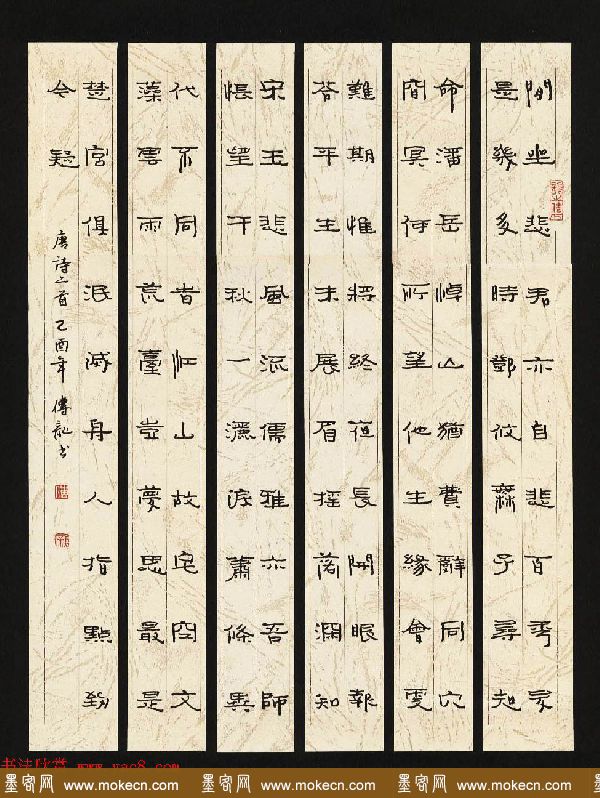 閒坐悲君亦自悲百年都
是幾多時鄧攸無子尋知
命潘岳悼亡猶費辭同穴
窅冥何所望他生緣會更
難期惟將終夜長開眼報
答平生未展眉搖落深知
宋玉悲風流儒雅亦吾師
悵望千秋一灑淚蕭條異
代不同時江山故宅空文
藻雲雨荒臺豈夢思最是
楚宮俱泯滅舟人指點到
今疑
唐詩二首 乙酉年 傳書
书法欣赏 www.yac8.com
墨客网 www.mokecn.com 墨客网 www.mokecn.com 墨客网 www.mokecn.com